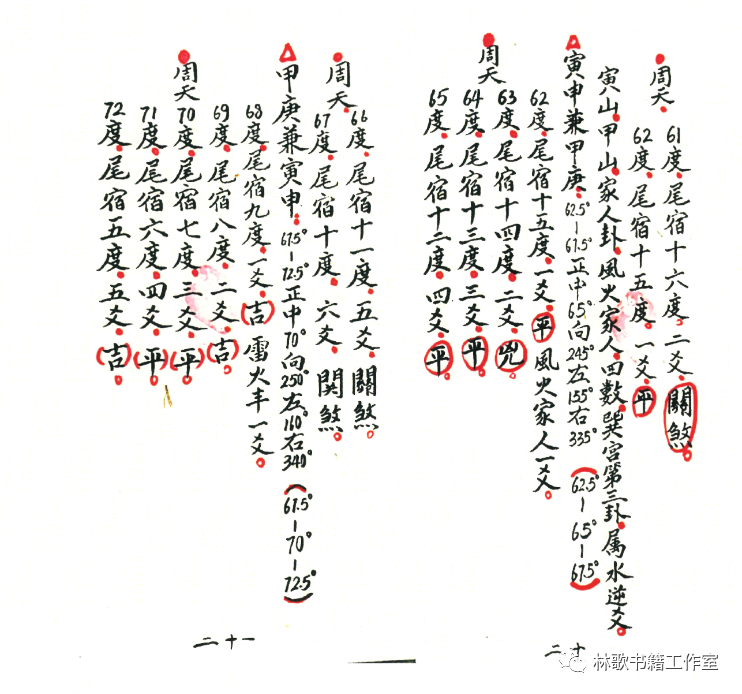 周天
61度尾宿十六度二爻關煞
62度尾宿十五度一爻平
寅山甲山家人卦風火家人四數巽宮第三卦属水逆爻
寅申兼甲庚62.5°—67.5°正中65°向245°左155°右335°(62.5°—65—67.5°)
62度尾宿十五度一爻平風火家人一爻
63度尾宿十四度二爻兇
周天
64度尾宿十三度三爻平
65度尾宿十二度四爻平
二十
周天
66度尾宿十一度五爻關煞
67度尾宿十度六爻関煞
甲庚兼寅申67.5°—72.5°正中70°向250°左160°右340°(67.5°—70°—72.5°)
68度尾宿九度一爻(吉)雷火丰一爻
69度尾宿八度二爻(吉)
周天
70度尾宿七度三爻(平)
71度尾宿六度四爻(平)
72度尾宿五度五爻(吉)
二十一
林歌书籍工作室